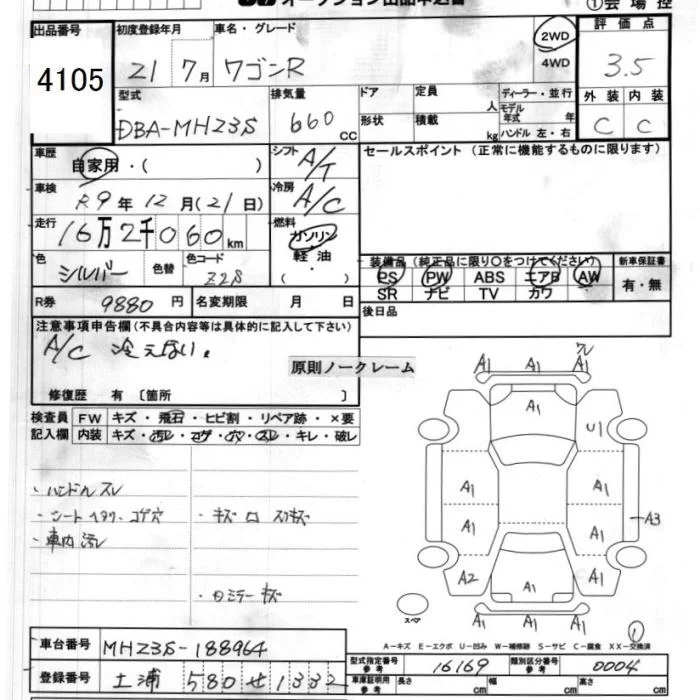 オークション出品申込書
①会場控
出品番号
4105
初度登録年月
車名・グレード
21 7月
ワゴンR
2WD
4WD
評価点
3.5
外装 内装
C C
型式
DBA-MH23S
排気量
660 CC
ドア
形状
定員 人
積載 kg
ディーラー・並行
モデル年式 年
ハンドル 左・右
車歴
自家用・( )
シフト A/T
車検
R9年12月(21日)
冷房 A/C
走行
16万2千060km
燃料
ガソリン
軽油
・
( )
色
シルバー
色替
色コード
Z2S
R券 9880円
名変期限 月 日
セールスポイント (正常に機能するものに限ります)
装備品 (純正品に限り〇をつけてください)
新車保証書
PS PW ABS エアB AW
SR ナビ TV カワ
有・無
後日品
注意事項申告欄(不具合内容等は具体的に記入して下さい)
A/C 冷えない。
原則ノークレーム
修復歴 有 〔箇所 〕
検査員記入欄
FW キズ・飛石・ヒビ割・リペア跡・×要
内装 キズ・汚レ・コゲ・穴・スレ・キレ・破レ
・ハンドルスレ
・シートヘタリ・コゲ穴
・車内汚レ
・キズ
・ロミラーキズ
A1 A1 A1
A1
U1
A1 A1
A1 A1
A3
A2 A1 A1
A1 A1 A1
スペア
①
A-キズ E-エクボ U-凹み W-補修跡 S-サビ C-腐食 XX-交換済
車台番号 MH23S-188964
登録番号 土浦 580 せ 1332
型式指定番号 参考 16169
類別区分番号 参考 0004
車庫証明用 参考 長さ cm 幅 cm 高さ cm